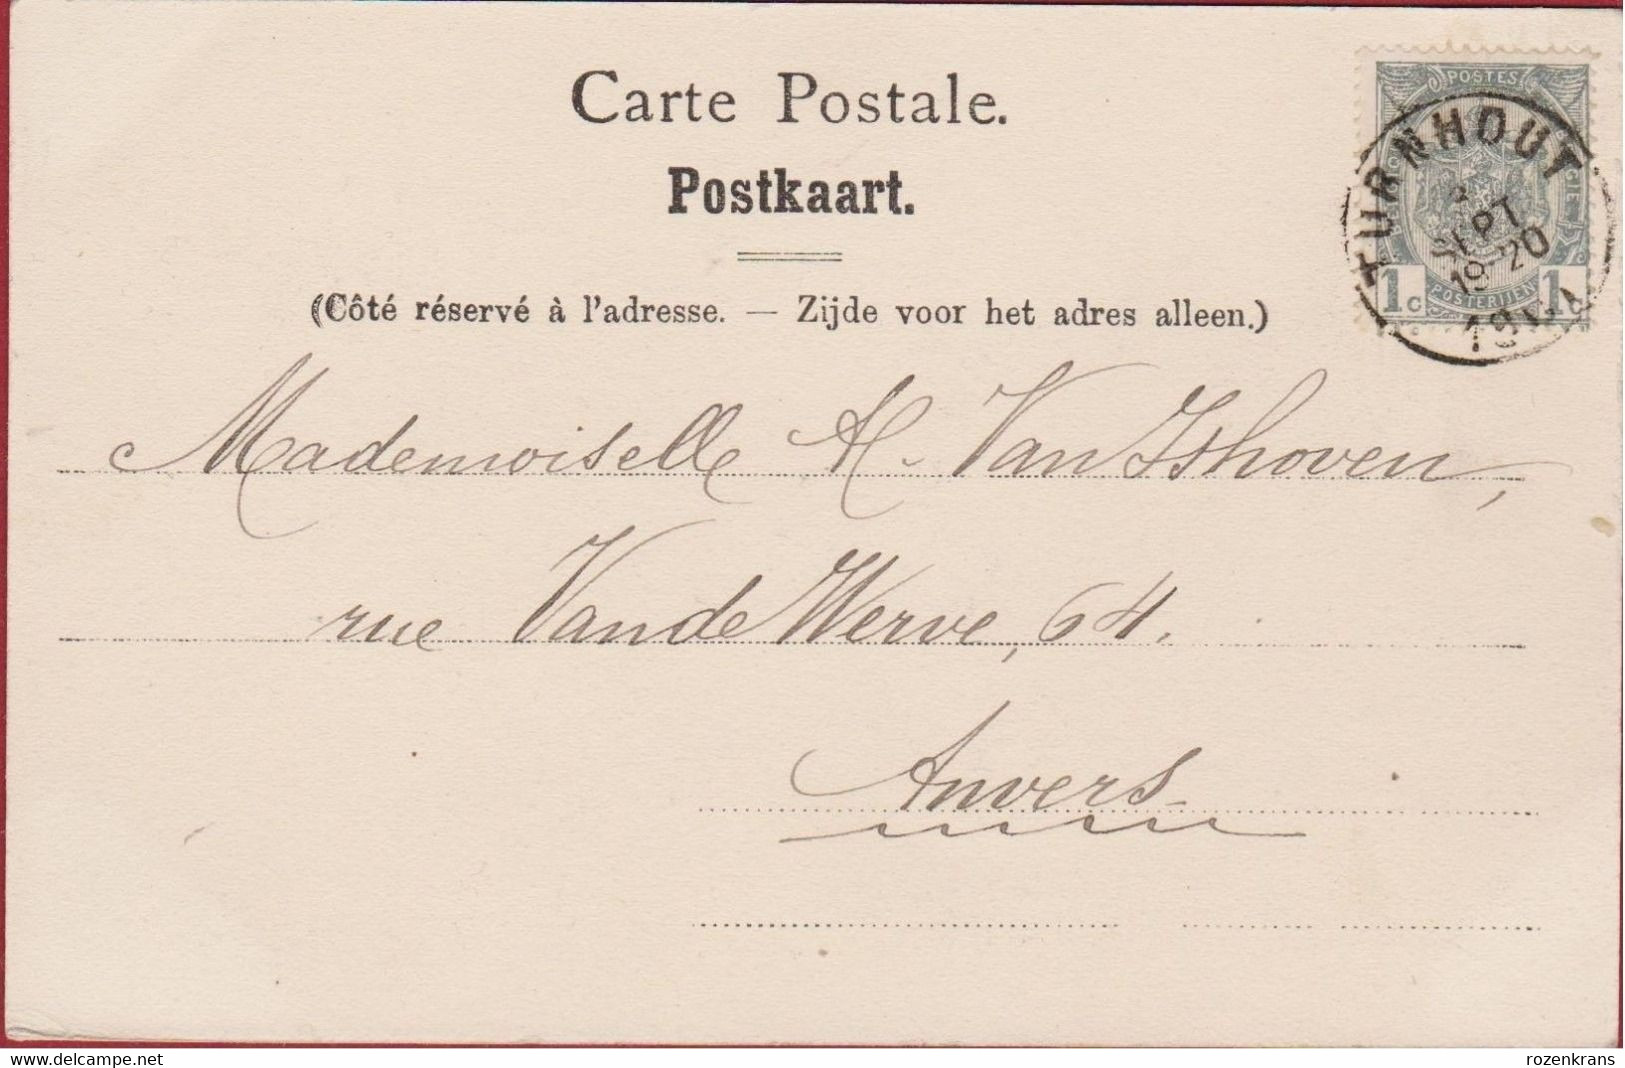 Carte Postale.
Postkaart.
(Côté réservé à l'adresse. — Zijde voor het adres alleen.)
POSTES
TURNHOUT
SEPT
19-20
1c POSTERIJEN 1c
Mademoiselle A. Van Ishoven,
rue Van de Werve, 64.
Anvers
www.delcampe.net
rozenkrans